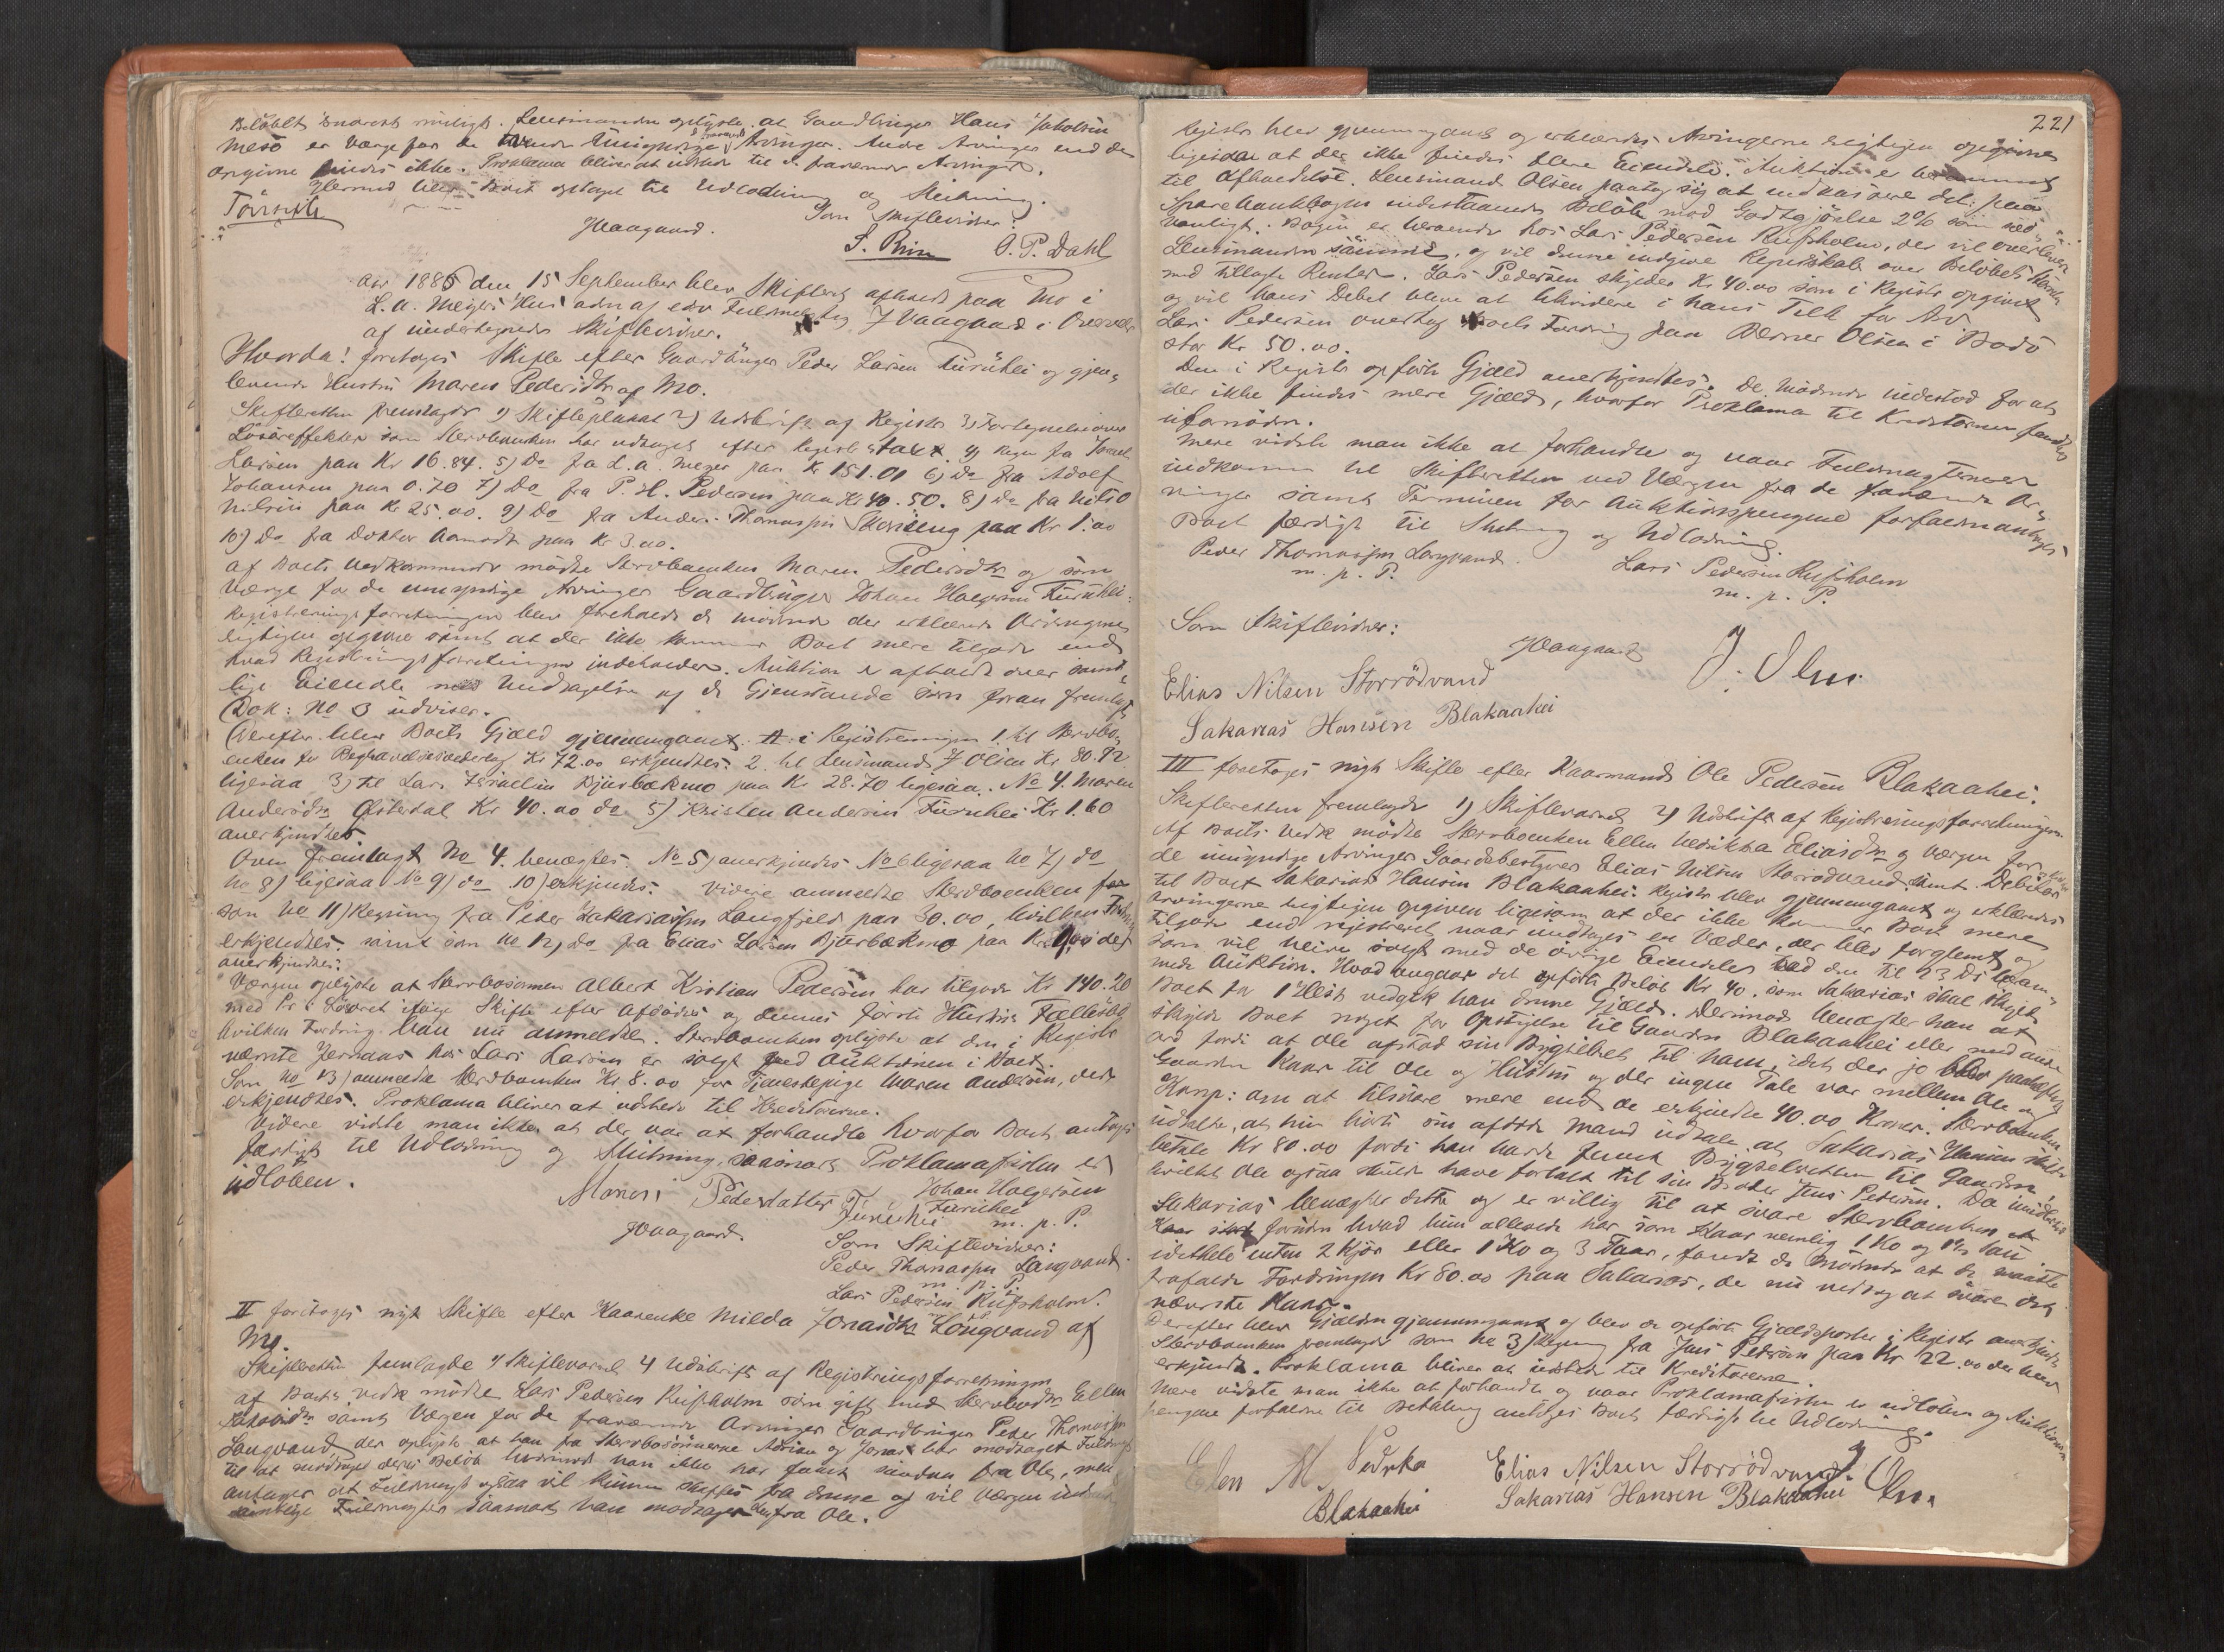 Beløbet snarest muligt. Lensmanden oplyste at Gaardbruger Hans Jakobsen
Mesø er Værge for de tvende Umyndige Arvinger. Andre Arvinger end de
opgivne findes ikke. Proklama bliver at udstede til de fraværende Arvinger.
Hermed blev Boet optaget til Udlodning og Slutning.
Som Skiftevidner:
JVaagaard.
S. Rin O. P. Dahl
Aar 1886 den 15 September blev Skifteret afholdt paa Mo i
L. A. Meyers Hus adm af edv Fuldmægtig J Vaagaard i Overvær
af undertegnede Skiftevidner.
Hvorda! foretoges Skifte efter Gaardbruger Peder Larsen Furuhei og gjen-
levende Hustru Maren Pedersdtr af Mo.
Skifteretten fremlagde 1) Skifteplakat 2) Udskrift af Registr 3) Fortegnelse over
Løsøreffekter som Stervboenken har udtaget efter Registr taxt 4) Regn fra Israel
Larsen paa Kr 16.84. 5) Do fra L.A. Meyer paa Kr 151.01 6) Do fra Adolf
Johansen paa 0.70 7) Do fra P. H. Pedersen paa Kr 40.50. 8) Do fra Nils O
Nilsen paa Kr 25.00. 9) Do fra Anders Thomassen paa Kr 1.00
10) Do fra Doktor Aamodt paa Kr 3.00.
Af Boets Vedkommende mødte Stervboenken Maren Pedersdtr og som
Værge for de umyndige Arvinger Gaardbruger Johan Holgersen Furuhei.
Registreringsforretningen blev foreholdt de mødende der erklærede Arvingerne
rigtigen opgivne samt at der ikke kommer Boet mere tilgode end
hvad Registreringsforretningen indeholder. Auktion er afholdt over samt-
lige Eiendele med Undtagelse af de Gjenstande som foran fremlagt
Dok: No 3 udviser.
Derefter blev Boets Gjæld gjennemgaaet. A i Registreringen 1. til Stervbo-
enken for Begravelse Kr 72.00 erkjendtes. 2. til Lensmand J Olsen Kr. 80.12
ligesaa 3) til Lars Israelsen Bjurbækmo paa Kr 28.70 ligesaa. No 4. Maren
Andersdtr Østerdal Kr 40.00 do 5) Kristen Andersen Furuhei Kr 1.60
anerkjendtes
Oven fremlagt No 4. benegtes. No 5) anerkjendes No 6 ligesaa No 7) do
No 8) ligesaa No 9) do 10) erkjendes. Videre anmeldte Stervboenken
som No 11) Regning fra Peder Zakariassen Langfjeld paa 30.00, hvilken Fordring
erkjendtes. samt som No 12) Do fra Elias Larsen Bjurbækmo paa Kr der
anerkjendtes.
Værgen oplyste at Stervbosønnen Albert Kristian Pedersen har tilgode Kr 140.20
med Pr i Løsøret ifølge Skifte efter Afdødes og dennes første Hustrus Fællesbo
hvilken Fordring han nu anmeldte. Stervboenken oplyste at den i Registr
nævnte Jernaas hos Lars Larsen er solgt ved Auktionen i Boet.
Som No 13) anmeldte Stervboenken Kr 8.00 for Tjenestepige Maren Andersen, der
erkjendtes. Proklama bliver at udstede til Kreditorerne.
Videre vidste man ikke at der var at forhandle hvorfor Boet antoges
færdigt til Udlodning og Slutning, saasnart Proklamafristen er
udløben.
Maren Pedersdatter Furuhei
Johan Holgersen
Furuhei
m. p. P.
JVaagaard.
Som Skiftevidner:
Peder Thomassen Langvand
m. p. P.
Lars Pedersen Rufsholm.
II foretoges nyt Skifte efter Kaarenke Milda Jonasdtr Langvand af
Mo.
Skifteretten fremlagde 1) Skiftevarsel 2) Udskrift af Registreringsforretningen
Af Boets vedk mødte Lars Pedersen Rufsholm som gift med Stervbodtr Ellen
samt Værgen for de fraværende Arvinger Gaardbruger Peder Thomassen
Langvand der oplyste at han fra Stervbosønnerne Adrian og Jonas har modtaget Fuldmagt
til at modtage deres Beløb hvorimod han ikke har faaet saadan fra Ole, men
antager at Fuldmagt ogsaa vil kunne skaffes fra denne og vil Værgen
Fuldmagter saasnart han modtager den fra Ole.
221
Registr blev gjennemgaaet og erklærede Arvingerne rigtigen opgivne
ligesaa at der ikke findes flere Eiendele. Auktion er berammet
til Afholdelse. Lensmand Olsen paatog sig at indkassere det paa
Sparebankbogen indestaaende Beløb mod Godtgjørelse 2% som sed-
vanligt. Bogen er beroende hos Lars Pedersen Rufsholm, der vil overlevere
Lensmanden samme, og vil denne indgive Regnskab over Beløbets Størrelse
med tillagte Renter. Lars Pedersen skylder Kr 40.00 som i Registr opgivet
og vil hans Debet blive at likvidere i hans Tilk for Arv
Lars Pedersen overtog Boets Fordring paa Verner Olsen i Bodø
stor Kr 50.00.
Den i Registr opførte Gjæld anerkjendtes. De mødende indestod for at
der ikke findes mere Gjæld, hvorfor Proklama til Kreditorerne fandtes
ufornøden.
Mere vidste man ikke at forhandle og naar Fuldmagterne er
indkomne til Skifteretten ved Værgen fra de fraværende Ar-
vinger samt Terminen for Auktionspengene forfalden antages
Boet færdigt til Slutning og Udlodning.
Peder Thomassen Langvand.
m. p. P.
Lars Pedersen Rufsholm
m. p. P.
Som Skiftevidner:
JVaagaard J. Olsen
Elias Nilsen Storrødvand
Sakarias Hansen Blakaahei
III foretoges nyt Skifte efter Kaarmand Ole Pedersen Blakaahei.
Skifteretten fremlagde 1) Skiftevarsel 2) Udskrift af Registreringsforretningen.
Af Boets vedk mødte Stervboenken Ellen Hedrikka Eliasdtr og Værgen for
de umyndige Arvinger Gaardsbestyrer Elias Nilsen Storrødvand samt Debitor
til Boet Sakarias Hansen Blakaahei. Registr blev gjennemgaaet og erklæredes
Arvingerne rigtigen opgiven ligesom at der ikke kommer Boet mere
tilgode end registreret naar undtages en Væder, der blev forglemt og
som vil blive solgt med de øvrige Eiendele ved den til 23 Ds beram-
mede Auktion. Hvad angaar det opførte Beløb Kr 40. som Sakarias skal skylde
Boet for 1 Hest vedgik han denne Gjæld. Derimod benegter han at
skylde Boet noget for Opsigelse til Gaarden Blakaahei eller med andre
ord fordi at Ole afstod sin Bygselret til ham, idet der jo blev paahæftet
Gaarden Kaar til Ole og Hustru og der ingen Tale var mellem Ole og
Komp: om at tilsvare mere end de erkjendte 40.00 Kroner. Stervboenken
udtalte, at hun hørte sin afdøde Mand udtale at Sakarias Hansen skulde
betale Kr 80.00 fordi han havde faaet Bygselretten til Gaarden,
hvilket Ole ogsaa skulde have fortalt til sin Broder Jens Pedersen. Da imidlertid
Sakarias benegter dette og er villig til at svare Stervboenken
Kaar foruden hvad hun allerede har som Kaar nemlig 1 Ko og Sau
idethele enten 2 Kjør eller 1 Ko og 3 Faar, fandt de mødende at de maatte
frafalde Fordringen Kr 80.00 paa Sakarias, da nu vedtog at svare det
nævnte Kaar.
Derefter blev Gjælden gjennemgaaet og blev de opførte Gjældsposter i Registr anerkjendt
Stervboenken fremlagde som No 3) Regning fra Jens Pedersen paa Kr 22.00 der blev
erkjendt. Proklama bliver at udstede til Kreditorerne.
Mere vidste man ikke at forhandle og naar Proklamafristen er udløben og Auktions-
pengene forfaldne til Betaling antages Boet færdigt til Udlodning.
Elen M. Hedrika
Blakaahei
Elias Nilsen Storrødvand. J Olsen.
Sakarias Hansen Blakaahei